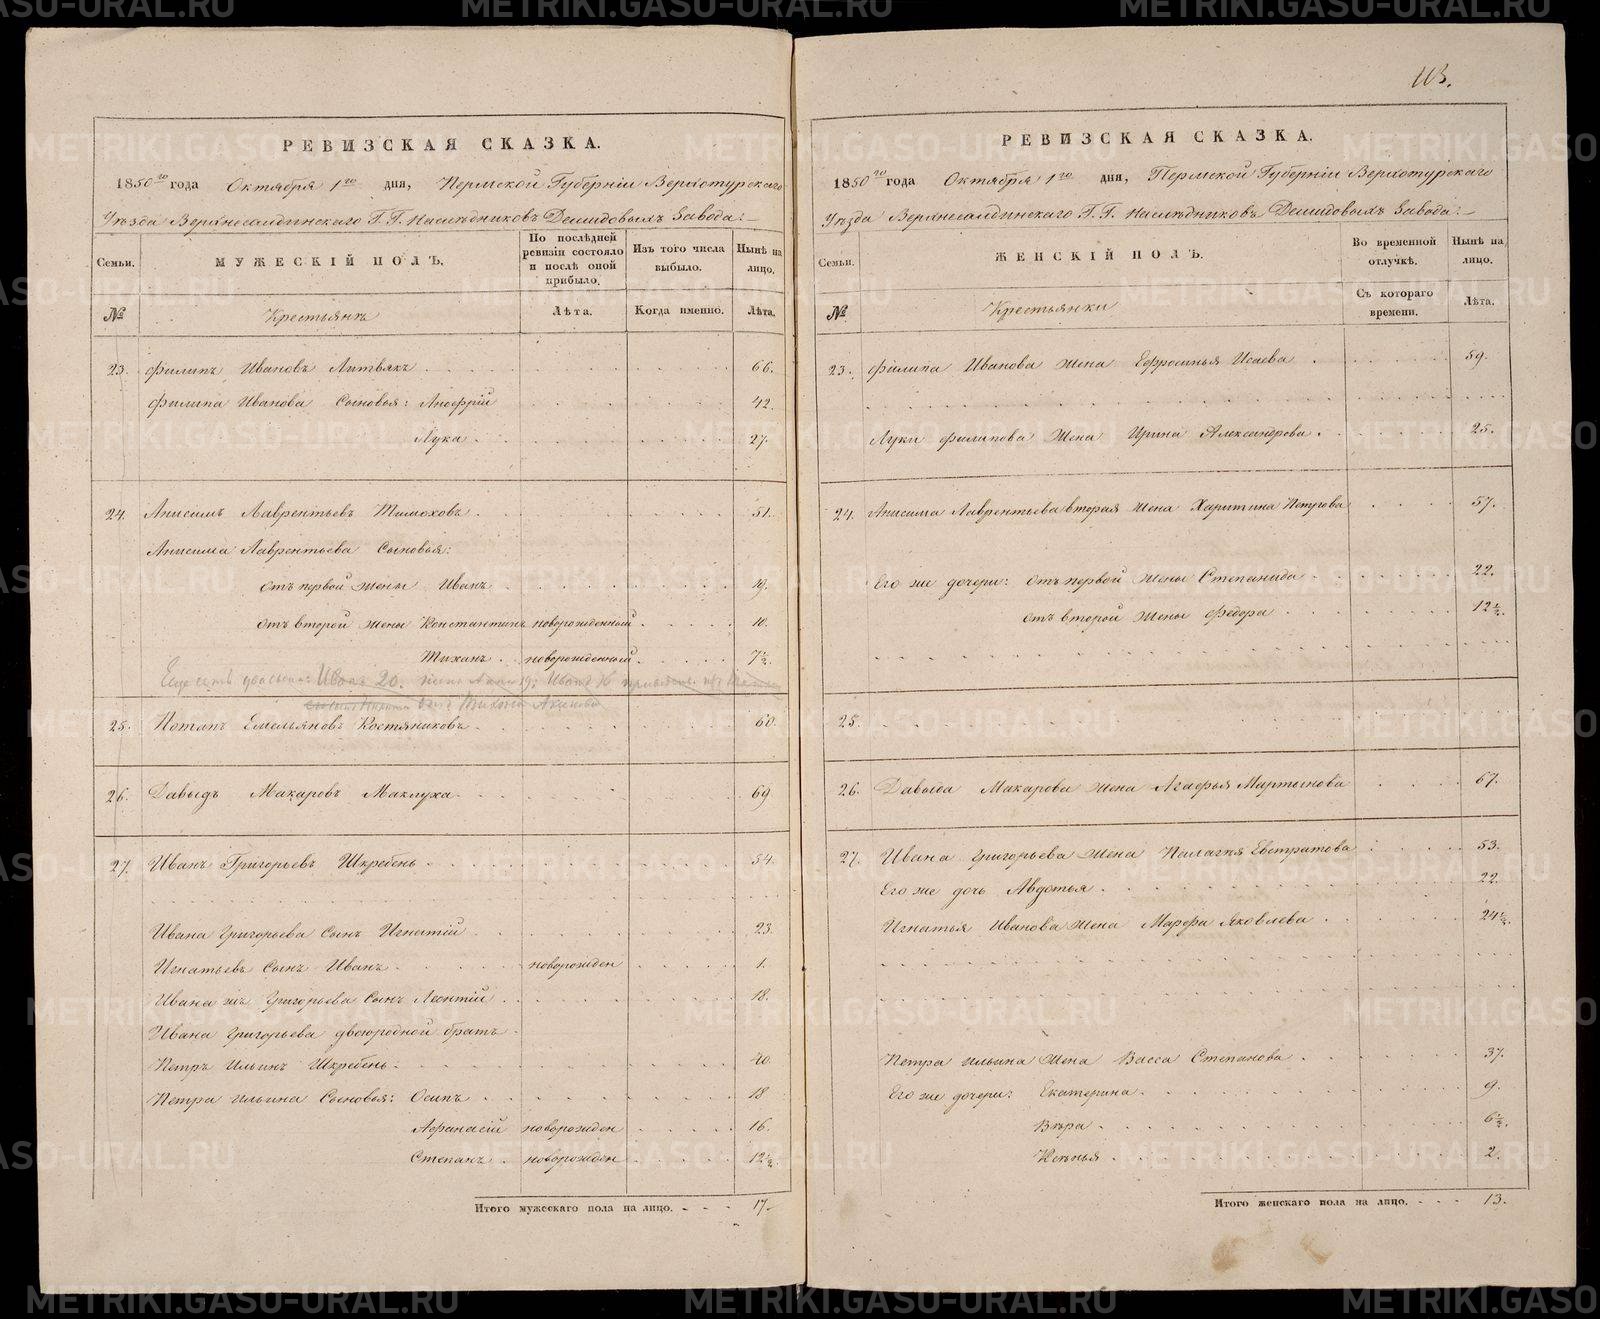 РЕВИЗСКАЯ СКАЗКА.
1850го года Октября 1го дня, Пермской Губерніи Верхотурскаго
Уѣзда Верхнесалдинскаго Г.Г. Наслѣдниковъ Демидовыхъ Завода:
Семьи.
МУЖЕСКІЙ ПОЛЪ.
По послѣдней ревизіи состояло и послѣ оной прибыло.
Изъ того числа выбыло.
Нынѣ на лицо.
№
Крестьянъ
Лѣта.
Когда именно.
Лѣта.
23. Филипъ Ивановъ Литвякъ 66.
Филипа Иванова Сыновья: Анофрій 42.
Лука 27.
24. Анисимъ Лаврентьевъ Тимоховъ 51.
Анисима Лаврентьева Сыновья:
отъ первой жены Иванъ 19.
отъ второй жены Константинъ новорожденный 10.
Тиханъ новорожденный 7½.
Еще есть два сына: Иванъ 20.
25. Потапъ Емельяновъ Костяниковъ 60.
26. Давыдъ Макаровъ Маклуха 69
27. Иванъ Григорьевъ Шкребень 54.
Ивана Григорьева Сынъ Игнатій 23.
Игнатьевъ Сынъ Иванъ новорожден 1.
Ивана жъ Григорьева Сынъ Леонтій 18.
Ивана Григорьева двоюродной братъ
Петръ Ильинъ Шкребень 40
Петра Ильина Сыновья: Осипъ 18
Афанасій новорожден 16.
Степанъ новорожден 12½
Итого мужескаго пола на лицо. 17.
113.
РЕВИЗСКАЯ СКАЗКА.
1850го года Октября 1го дня, Пермской Губерніи Верхотурскаго
Уѣзда Верхнесалдинскаго Г.Г. Наслѣдниковъ Демидовыхъ Завода:
Семьи.
ЖЕНСКІЙ ПОЛЪ.
Во временной отлучкѣ.
Нынѣ на лицо.
№
Крестьянки
Съ котораго времени.
Лѣта.
23. Филипа Иванова жена Ефросинья Исаева 59.
Луки Филипова жена Ирина Александрова 25.
24. Анисима Лаврентьева вторая жена Харитина Петрова 57.
Его же дочери: отъ первой жены Степанида 22.
отъ второй жены Федора 12½
25.
26. Давыда Макарова жена Агафья Мартынова 67.
27. Ивана Григорьева жена Пелагея Евстратова 53.
Его же дочь Авдотья 22
Игнатья Иванова жена Марфа Яковлева 24½
Петра Ильина жена Васса Степанова 37.
Его же дочери: Екатерина 9.
Вѣра 6½.
Ксенья 2.
Итого женскаго пола на лицо. 13.
METRIKI.GASO-URAL.RU